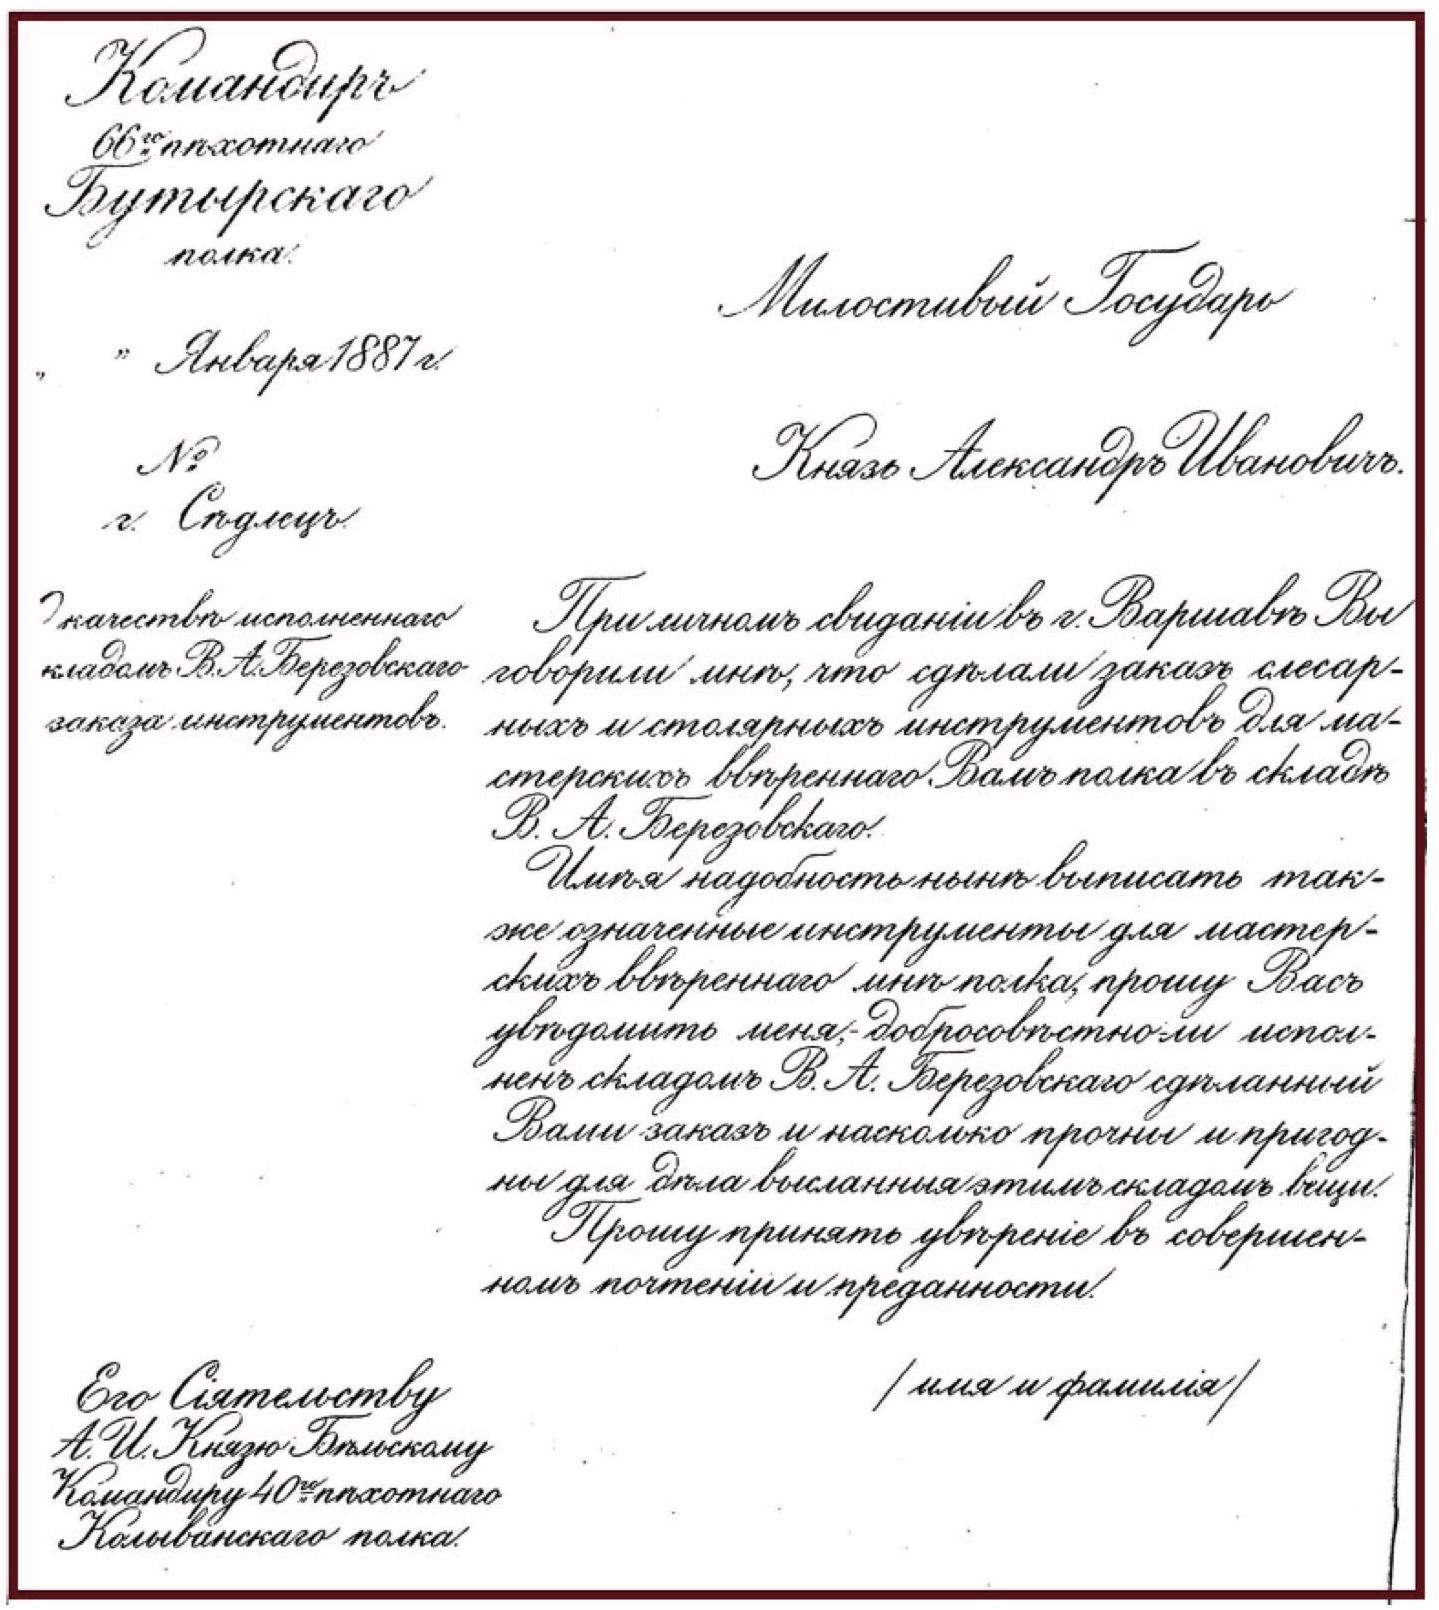 Командиръ
66го пѣхотнаго
Бутырскаго
полка.
„ " Января 1887 г.
№
г. Сѣдлецъ.
качествѣ исполненнаго
кладомъ В. А. Березовскаго
заказа инструментовъ.
Милостивый Государь
Князь Александръ Ивановичъ.
При личномъ свиданіи въ г. Варшавѣ Вы
говорили мнѣ, что сдѣлали заказъ слесар-
ныхъ и столярныхъ инструментовъ для ма-
стерскихъ ввѣреннаго Вамъ полка въ складѣ
В. А. Березовскаго.
Имѣя надобность нынѣ выписать так-
же означенные инструменты для мастер-
скихъ ввѣреннаго мнѣ полка, прошу Васъ
увѣдомить меня,- добросовѣстно-ли испол-
ненъ складомъ В. А. Березовскаго сдѣланный
Вами заказъ и насколько прочны и пригод-
ны для дѣла высланныя этимъ складомъ вещи.
Прошу принять увѣреніе въ совершен-
номъ почтеніи и преданности.
/имя и фамилія/
Его Сіятельству
А. И. Князю Бѣльскому
Командиру 40го пѣхотнаго
Колыванскаго полка.